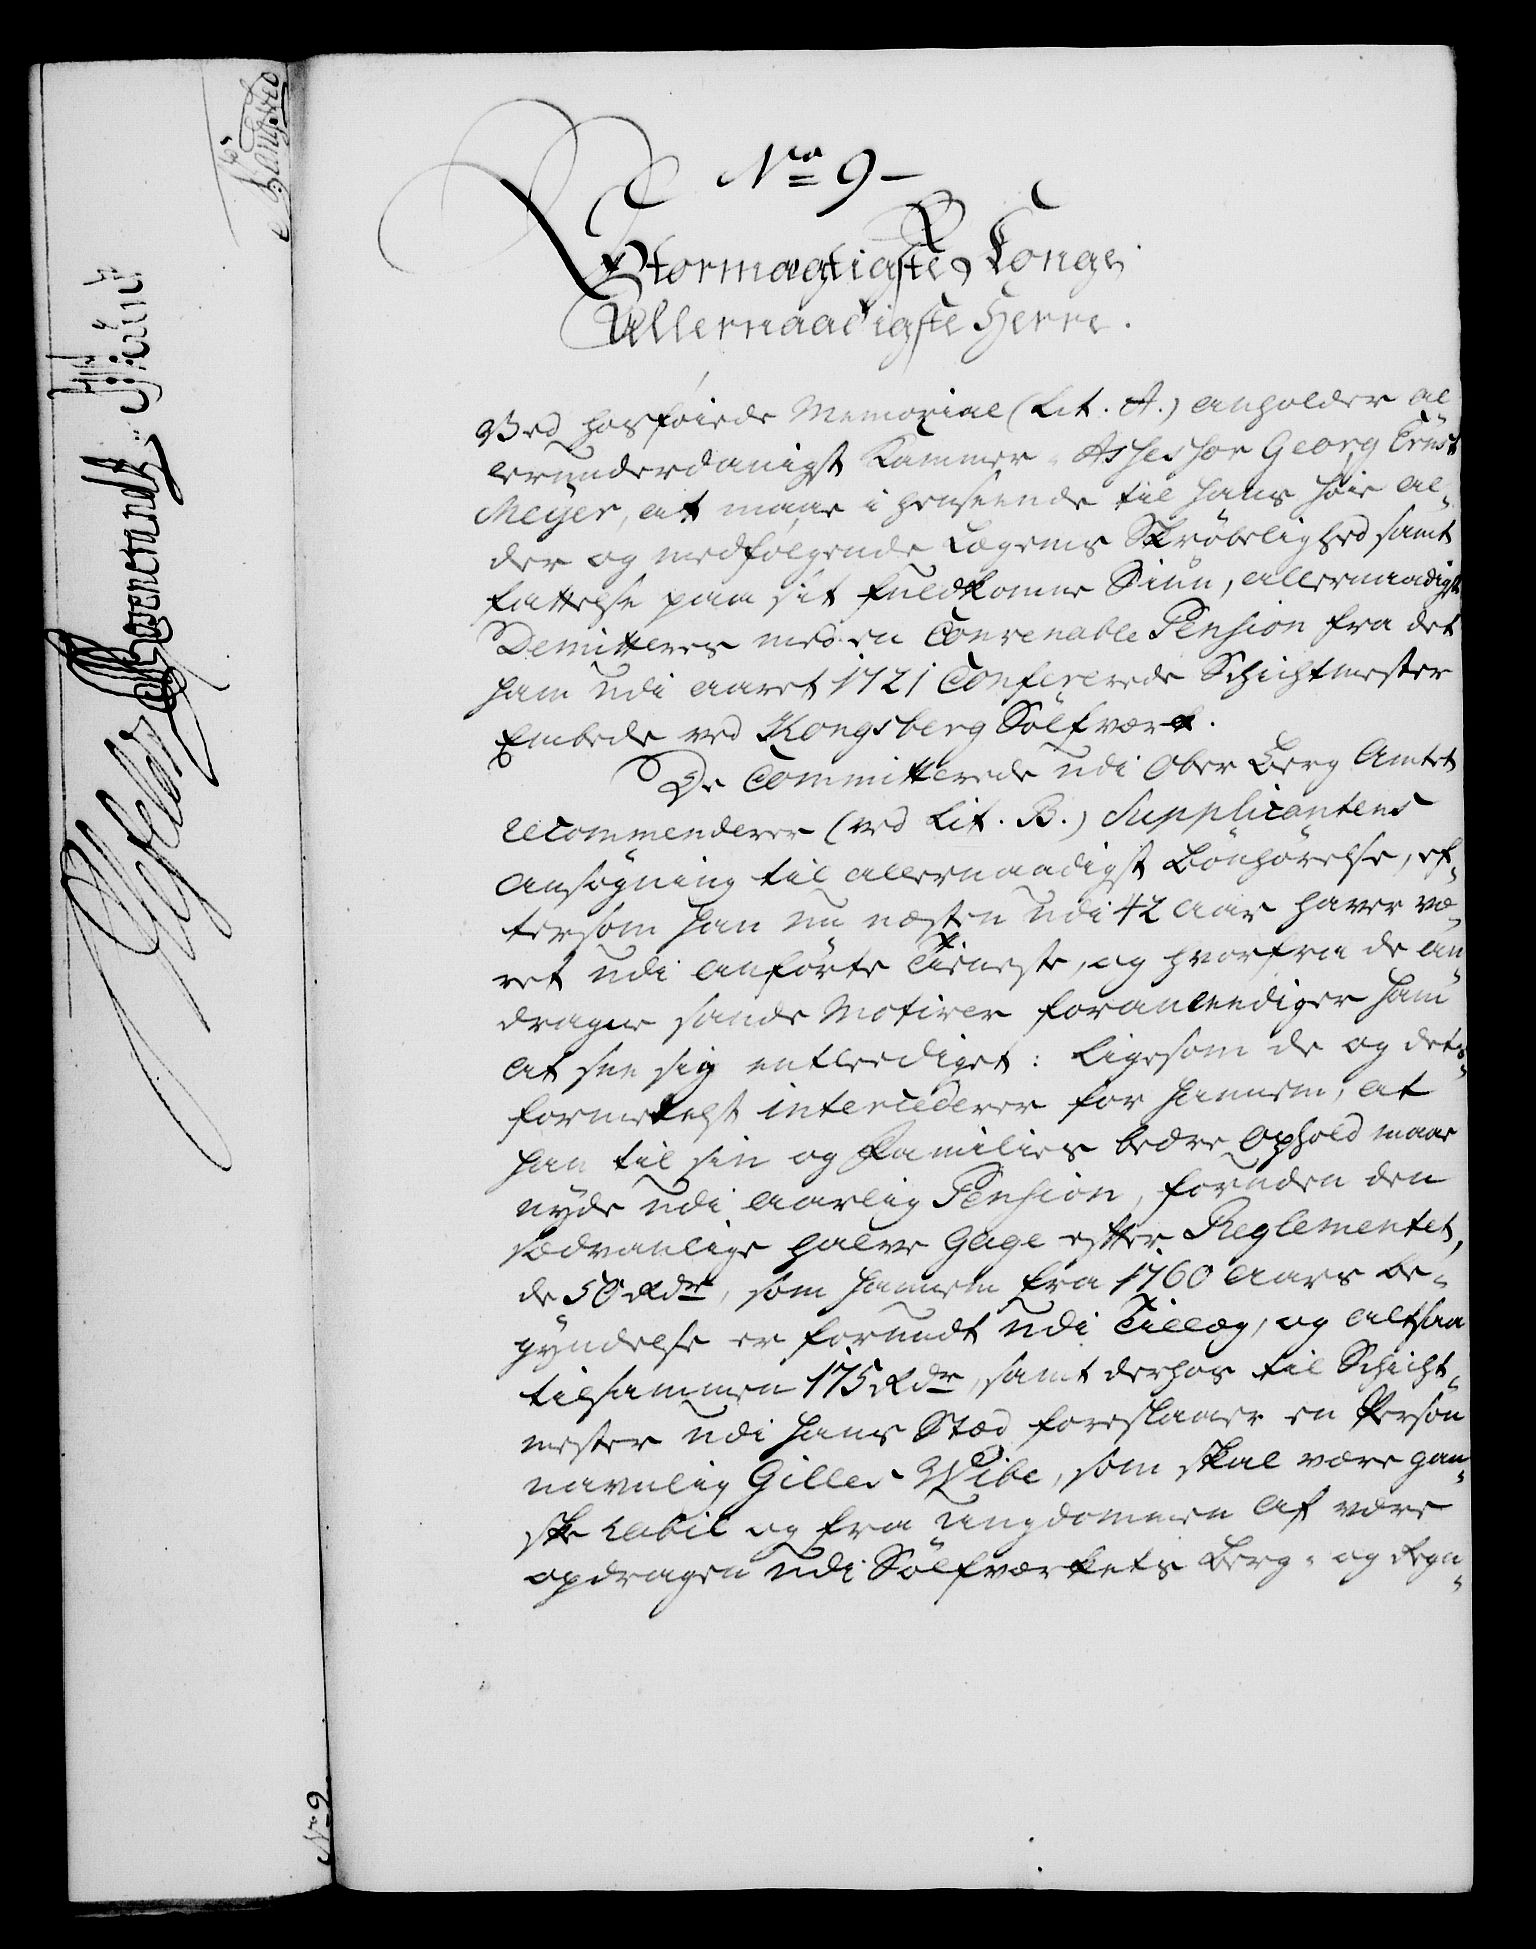 No 9-
Stormægtigste Konge,
Allernaadigste Herre.
Ved hosføiede Memorial (Lit. A.) anholder al-
lerunderdanigst Kammer-Assessor Georg Ernst
Meyer, at maae i henseende til hans høie Al-
der og medfølgende Legems Skrøbelighed samt
fattelse paa sit fuldkomne Siun, allernaadigst
Demitteres med en Convenable Pension fra det
ham udi aaret 1721 Confererede Schichtmester
Embede ved Kongsberg Sölfværk.
De Committerede udi Ober Berg Amtet
recommenderer (ved Lit. B.) Supplicantens
Ansøgning til allernaadigst Bönhörelse, ef-
tersom han nu næsten udi 42 Aar haver væ-
ret udi anförte Tieneste, og hvorfra de an-
dragne sande Motiver foranlediger ham
at see sig entlediget: Ligesom de og det-
formedelst intercederer for hannem, at
han til sin og Families bedre Ophold maae
nyde udi aarlig Pension, foruden den
sædvanlige halve Gage efter Reglementet,
de 50 Rdr, som hannem fra 1760 Aars be-
gyndelse er forundt udi Tillæg, og altsaa
tilsammen 175 Rdr, samt derhos til Schicht-
mester udi hans Stæd foreslaaer en Person
navnlig Gilles Wibe, som skal være gan-
ske habil og fra Ungdommen af være
opdragen udi Sölfværkets Berg- og Regn-
No 9.